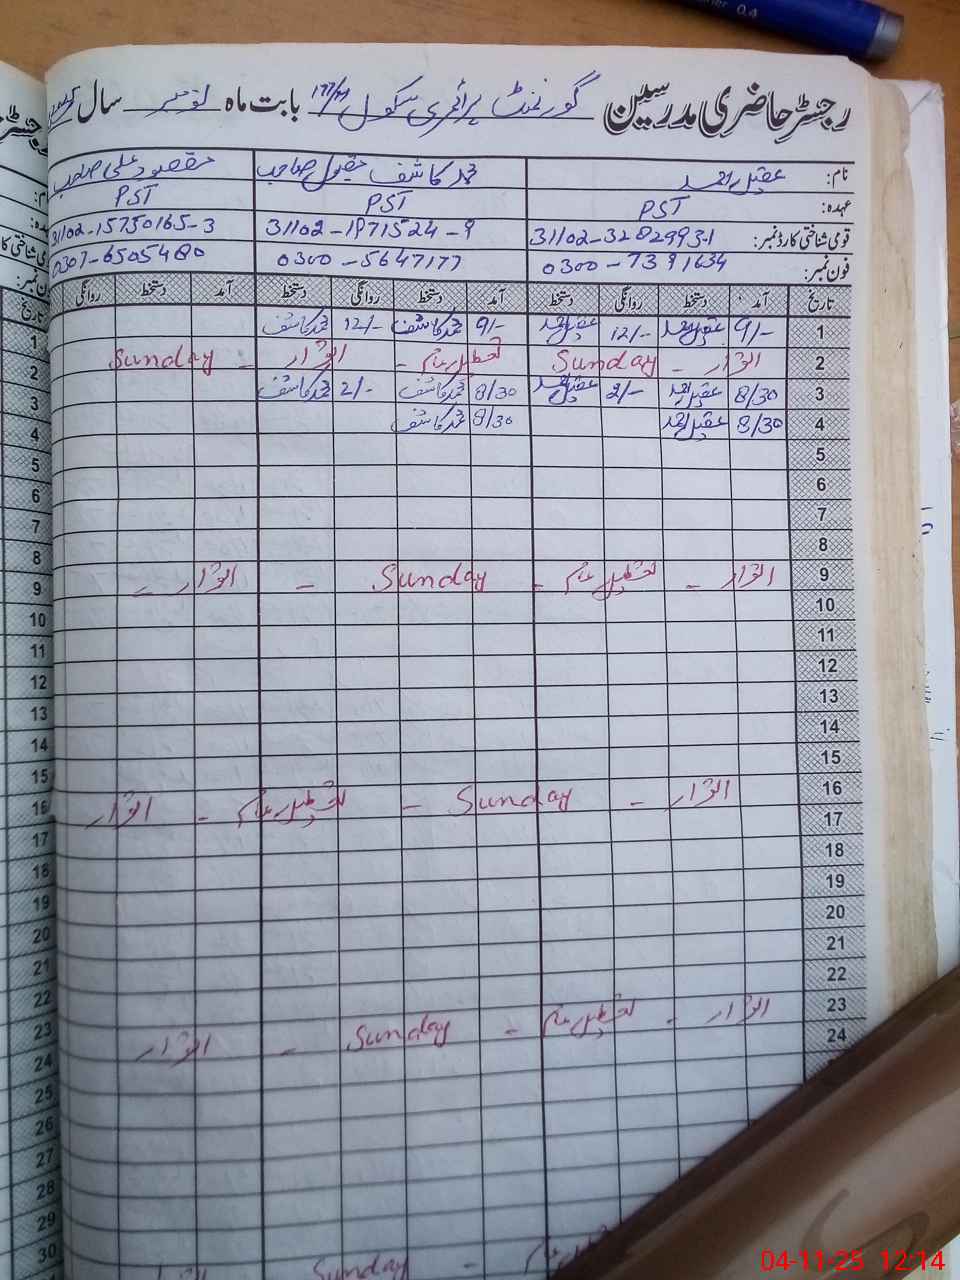 رجسٹر حاضری مدرسین گورنمنٹ پرائمری سکول بابت ماہ نومبر سال
نام: عقیل احمد محمد کاشف صاحب مقصود علی صاحب
عہدہ: PST PST PST
قومی شناختی کارڈ نمبر: 31102-3282993-1 31102-1971524-9 31102-15750165-3
فون نمبر: 0300-7391634 0300-5647177 0307-6505480
تاریخ آمد دستخط روانگی دستخط آمد دستخط روانگی دستخط آمد دستخط روانگی
1 9/- عقیل احمد 12/- عقیل احمد 9/- محمد کاشف 12/- محمد کاشف 1
2 اتوار - Sunday تعطیل عام - اتوار - Sunday 2
3 8/30 عقیل احمد 2/- عقیل احمد 8/30 محمد کاشف 2/- محمد کاشف 3
4 8/30 عقیل احمد 8/30 محمد کاشف 4
5 5
6 6
7 7
8 8
9 اتوار - تعطیل عام - Sunday - اتوار - 9
10 10
11 11
12 12
13 13
14 14
15 15
16 اتوار - Sunday - تعطیل عام - اتوار 16
17 17
18 18
19 19
20 20
21 21
22 22
23 اتوار - تعطیل عام - Sunday - اتوار 23
24 24
25
26
27
28
29
30 Sunday
0.4
04-11-25 12:14